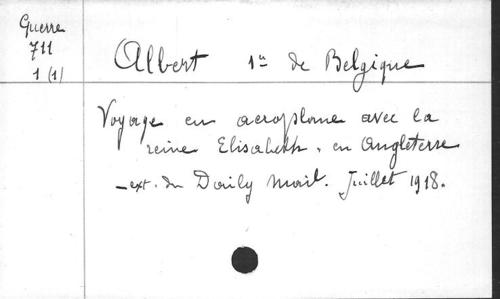 Guerre
711
1 (1)
Albert 1er de Belgique
Voyage en aeroplane avec la
reine Elisabeth, en Angleterre
_ext. du Daily Mail. Juillet 1918.